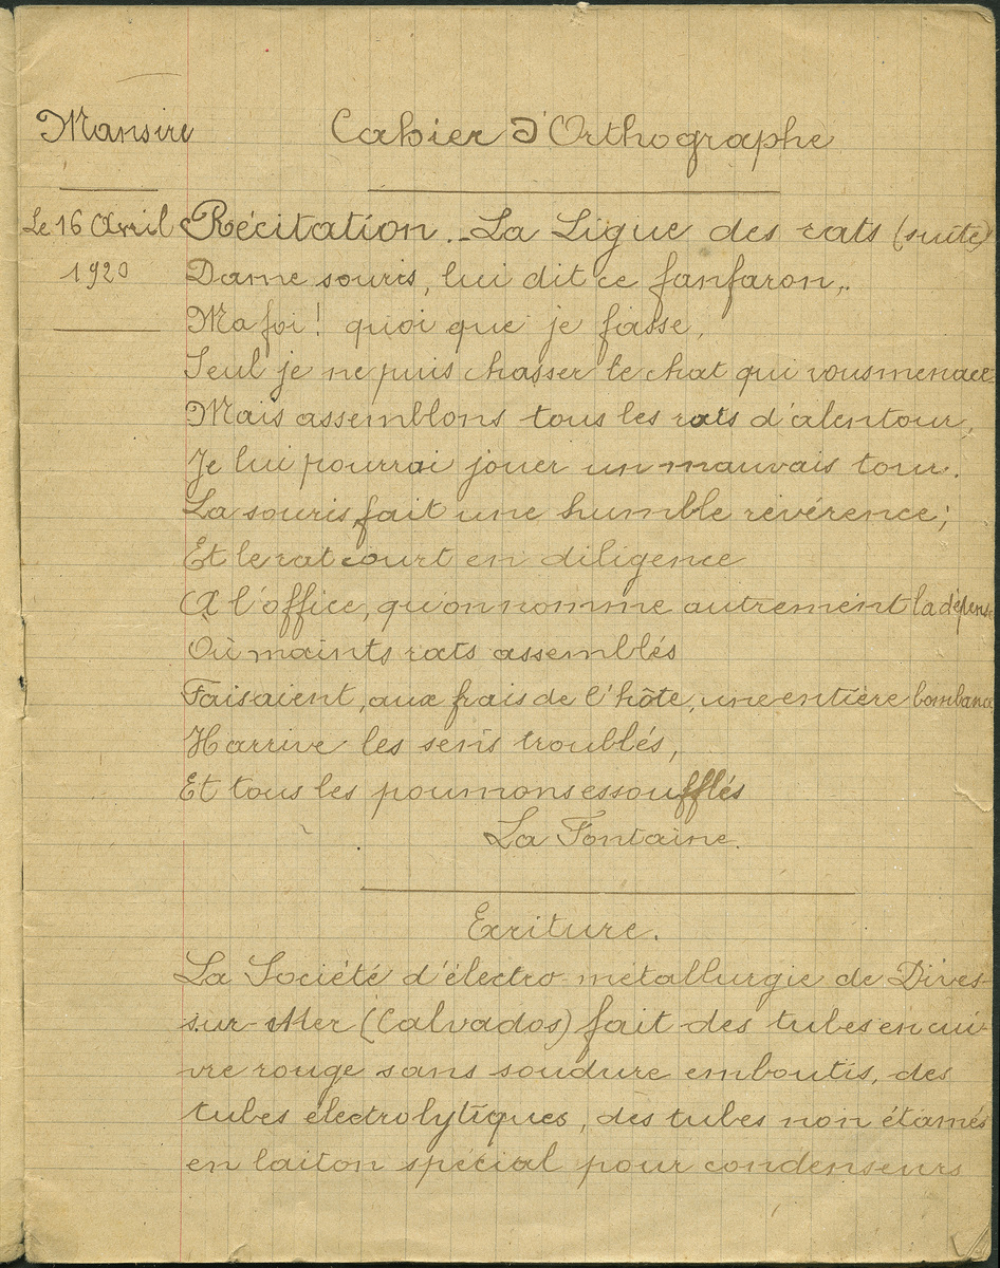 Mansire
Cahier d'Orthographe
Le 16 Avril
1920
Récitation._ La Ligue des rats (suite)
Dame souris, lui dit ce fanfaron,.
Ma foi! quoi que je fasse,
Seul je ne puis chasser le chat qui vous menace
Mais assemblons tous les rats d'alentour,
Je lui pourrai jouer un mauvais tour.
La souris fait une humble révérence;
Et le rat court en diligence
A l'office, qu'on nomme autrement la dépense
Où maints rats assemblés
Faisaient, aux frais de l'hôte, une entière bombance
Il arrive les sens troublés,
Et tous les poumons essoufflés
La Fontaine.
Ecriture.
La Société d'électro-métallurgie de Dives-
sur-Mer (Calvados) fait des tubes en cui-
vre rouge sans soudure emboutis, des
tubes électrolytiques, des tubes non étamés
en laiton spécial pour condenseurs